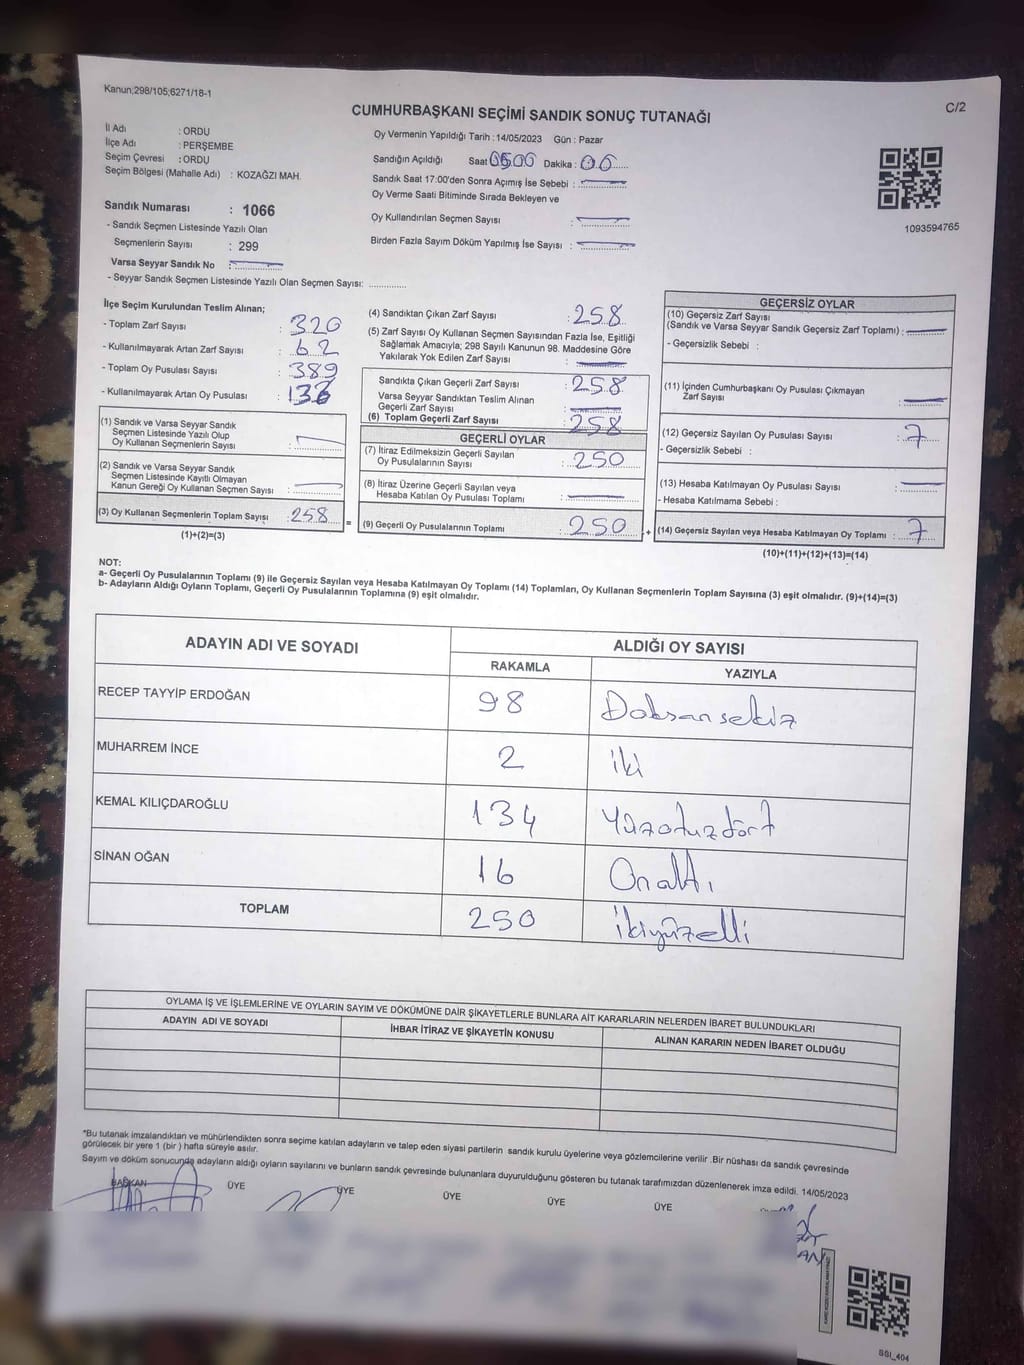 Kanun;298/105;6271/18-1
C/2
CUMHURBAŞKANI SEÇİMİ SANDIK SONUÇ TUTANAĞI
İl Adı : ORDU
İlçe Adı : PERŞEMBE
Seçim Çevresi : ORDU
Seçim Bölgesi (Mahalle Adı) : KOZAĞZI MAH.
Sandık Numarası : 1066
- Sandık Seçmen Listesinde Yazılı Olan
Seçmenlerin Sayısı : 299
Varsa Seyyar Sandık No :
- Seyyar Sandık Seçmen Listesinde Yazılı Olan Seçmen Sayısı: ..............
Oy Vermenin Yapıldığı Tarih : 14/05/2023 Gün : Pazar
Sandığın Açıldığı Saat Dakika :
Sandık Saat 17:00'den Sonra Açımış İse Sebebi :
Oy Verme Saati Bitiminde Sırada Bekleyen ve
Oy Kullandırılan Seçmen Sayısı :
Birden Fazla Sayım Döküm Yapılmış İse Sayısı :
1093594765
İlçe Seçim Kurulundan Teslim Alınan;
- Toplam Zarf Sayısı : 320
- Kullanılmayarak Artan Zarf Sayısı : 62
- Toplam Oy Pusulası Sayısı : 389
- Kullanılmayarak Artan Oy Pusulası :
(1) Sandık ve Varsa Seyyar Sandık
Seçmen Listesinde Yazılı Olup
Oy Kullanan Seçmenlerin Sayısı :
(2) Sandık ve Varsa Seyyar Sandık
Seçmen Listesinde Kayıtlı Olmayan
Kanun Gereği Oy Kullanan Seçmen Sayısı :
(3) Oy Kullanan Seçmenlerin Toplam Sayısı : 258
(1)+(2)=(3)
=
(4) Sandıktan Çıkan Zarf Sayısı : 258
(5) Zarf Sayısı Oy Kullanan Seçmen Sayısından Fazla İse, Eşitliği
Sağlamak Amacıyla; 298 Sayılı Kanunun 98. Maddesine Göre
Yakılarak Yok Edilen Zarf Sayısı :
Sandıkta Çıkan Geçerli Zarf Sayısı : 258
Varsa Seyyar Sandıktan Teslim Alınan
Geçerli Zarf Sayısı :
(6) Toplam Geçerli Zarf Sayısı : 258
GEÇERLİ OYLAR
(7) İtiraz Edilmeksizin Geçerli Sayılan
Oy Pusulalarının Sayısı : 250
(8) İtiraz Üzerine Geçerli Sayılan veya
Hesaba Katılan Oy Pusulası Toplamı :
(9) Geçerli Oy Pusulalarının Toplamı : 250
+
GEÇERSİZ OYLAR
(10) Geçersiz Zarf Sayısı
(Sandık ve Varsa Seyyar Sandık Geçersiz Zarf Toplamı) :
- Geçersizlik Sebebi :
(11) İçinden Cumhurbaşkanı Oy Pusulası Çıkmayan
Zarf Sayısı :
(12) Geçersiz Sayılan Oy Pusulası Sayısı : 7
- Geçersizlik Sebebi :
(13) Hesaba Katılmayan Oy Pusulası Sayısı :
- Hesaba Katılmama Sebebi :
(14) Geçersiz Sayılan veya Hesaba Katılmayan Oy Toplamı : 7
(10)+(11)+(12)+(13)=(14)
NOT:
a- Geçerli Oy Pusulalarının Toplamı (9) ile Geçersiz Sayılan veya Hesaba Katılmayan Oy Toplamı (14) Toplamları, Oy Kullanan Seçmenlerin Toplam Sayısına (3) eşit olmalıdır. (9)+(14)=(3)
b- Adayların Aldığı Oyların Toplamı, Geçerli Oy Pusulalarının Toplamına (9) eşit olmalıdır.
ADAYIN ADI VE SOYADI
ALDIĞI OY SAYISI
RAKAMLA
YAZIYLA
RECEP TAYYİP ERDOĞAN 98 Doksansekiz
MUHARREM İNCE 2 iki
KEMAL KILIÇDAROĞLU 134 Yüzotuzdört
SİNAN OĞAN 16 Onaltı
TOPLAM 250 ikiyüzelli
OYLAMA İŞ VE İŞLEMLERİNE VE OYLARIN SAYIM VE DÖKÜMÜNE DAİR ŞİKAYETLERLE BUNLARA AİT KARARLARIN NELERDEN İBARET BULUNDUKLARI
ADAYIN ADI VE SOYADI
İHBAR İTİRAZ VE ŞİKAYETİN KONUSU
ALINAN KARARIN NEDEN İBARET OLDUĞU
*Bu tutanak imzalandıktan ve mühürlendikten sonra seçime katılan adayların ve talep eden siyasi partilerin sandık kurulu üyelerine veya gözlemcilerine verilir .Bir nüshası da sandık çevresinde
görülecek bir yere 1 (bir ) hafta süreyle asılır.
Sayım ve döküm sonucunda adayların aldığı oyların sayılarını ve bunların sandık çevresinde bulunanlara duyurulduğunu gösteren bu tutanak tarafımızdan düzenlenerek imza edildi. 14/05/2023
BAŞKAN ÜYE ÜYE ÜYE ÜYE ÜYE